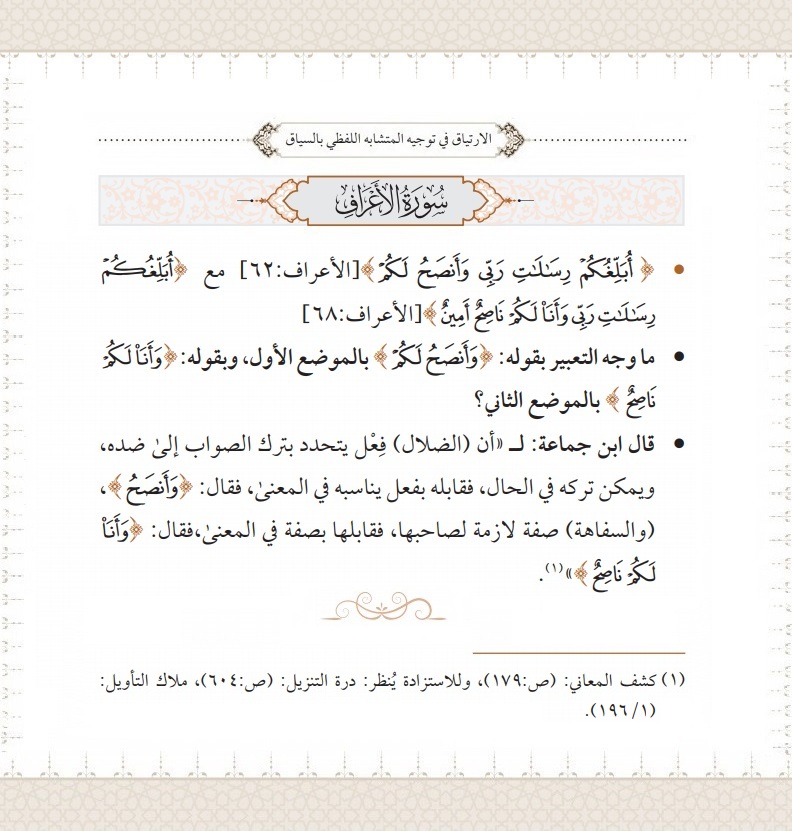 الارتياق في توجيه المتشابه اللفظي بالسياق
سُورَةُ الأَعْرَافِ
• ﴿ أُبَلِّغُكُمْ رِسَٰلَٰتِ رَبِّى وَأَنصَحُ لَكُمْ﴾[الأعراف:٦٢] مع ﴿أُبَلِّغُكُمْ
رِسَٰلَٰتِ رَبِّى وَأَنَا۠ لَكُمْ نَاصِحٌ أَمِينٌ﴾[الأعراف:٦٨]
• ما وجه التعبير بقوله: ﴿وَأَنصَحُ لَكُمْ﴾ بالموضع الأول، وبقوله: ﴿وَأَنَا۠ لَكُمْ
نَاصِحٌ ﴾ بالموضع الثاني؟
• قال ابن جماعة: لـ «أن (الضلال) فِعْل يتحدد بترك الصواب إلىٰ ضده،
ويمكن تركه في الحال، فقابله بفعل يناسبه في المعنىٰ، فقال: ﴿وَأَنصَحُ ﴾،
(والسفاهة) صفة لازمة لصاحبها، فقابلها بصفة في المعنىٰ،فقال: ﴿وَأَنَا۠
لَكُمْ نَاصِحٌ ﴾»(١).
(١) كشف المعاني: (ص:١٧٩)، وللاستزادة يُنظر: درة التنزيل: (ص:٦٠٤)، ملاك التأويل:
(١/ ١٩٦).